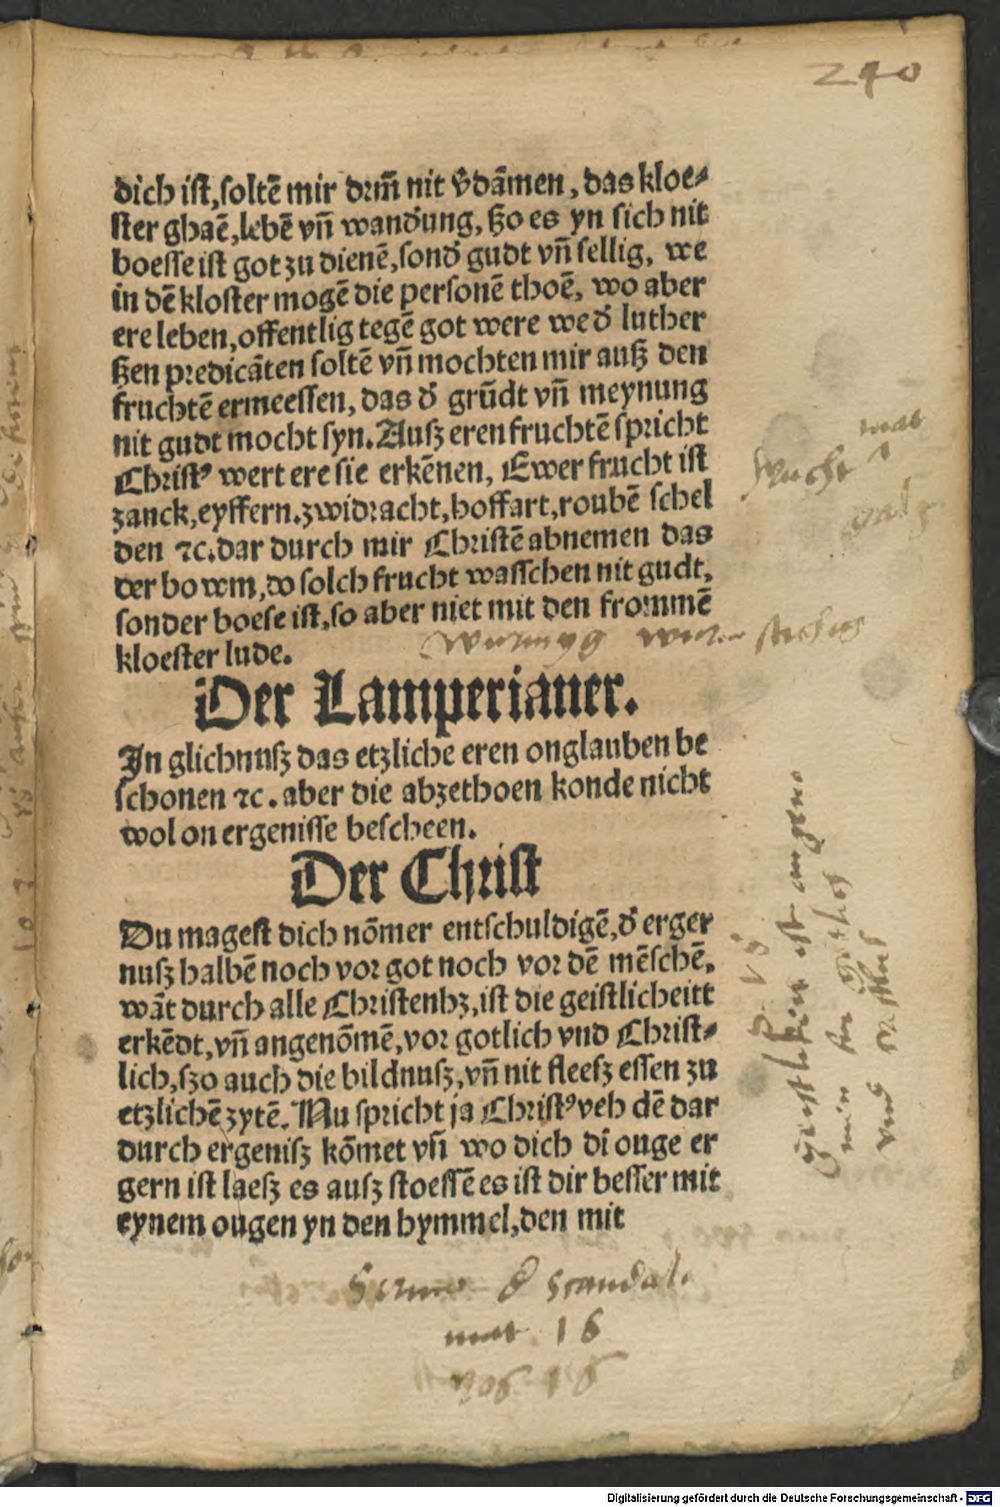 240
dich ist, soltē mir drm̄ nit v̄dāmen, das kloe⸗
ster ghaē, lebē vn̄ wandūng, ßo es yn sich nit
boesse ist got zu dienē, sond̓ gudt vn̄ sellig, we
in dē kloster mogē die personē thoē, wo aber
ere leben, offentlig tegē got were wed̓ luther
ßen predicāten soltē vn̄ mochten mir auß den
fruchtē ermeessen, das d̓ grūdt vn̄ meynung
nit gudt mocht syn. Ausz eren fruchtē spricht
Christꝰ wert ere sie erkēnen, Ewer frucht ist
zanck, eyffern. zwidracht, hoffart, roubē schel
den ⁊c. dar durch mir Christē abnemen das
der bowm, do solch frucht wasschen nit gudt,
sonder boese ist, so aber niet mit den frommē
kloester lude.
Der Lamperianer.
In glichnusz das etzliche eren onglauben be
schonen ⁊c. aber die abzethoen konde nicht
wol on ergenisse bescheen.
Der Christ
Du magest dich nōmer entschuldigē, d̓ erger
nusz halbē noch vor got noch vor dē mēschē,
wāt durch alle Christenhz, ist die geistlicheitt
erkēdt, vn̄ angenōmē, vor gotlich vnd Christ⸗
lich, szo auch die bildnusz, vn̄ nit fleesz essen zu
etzlichē zytē. Nu spricht ja Christꝰ veh dē dar
durch ergenisz kōmet vn̄ wo dich dī ouge er
gern ist laesz es ausz stoessē es ist dir besser mit
eynem ougen yn den hymmel, den mit
mat 16
Digitalisierung gefördert durch die Deutsche Forschungsgemeinschaft - DFG